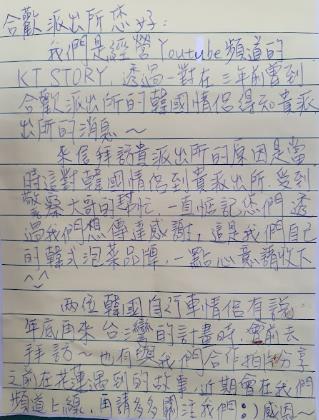 合歡派出所您好:
我們是經營Youtube頻道的
KT STORY,透過一對在三年前曾到
合歡派出所的韓國情侶得知貴派
出所的消息~
來信拜訪貴派出所的原因是當
時這對韓國情侶到貴派出所,受到
警察大哥的幫忙,一直惦記您們,透
過我們想傳達感謝,這是我們自己
的韓式泡菜品牌,一點心意請收下
^^
兩位韓國自行車情侶有說
年底再來台灣的計畫時,會前去
拜訪~也有與我們合作拍片分享
之前在花蓮遇到的故事,近期會在我們
頻道上線,再請多多關注我們:)感恩~